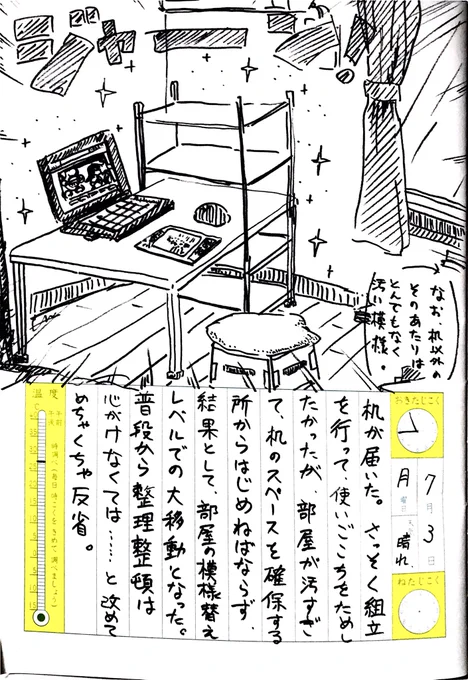 なお、机以外の
そのあたりは
とんでもなく
汚い模様。
おきたじこく
7月3日
月曜日
晴れ
ねたじこく
机が届いた。さっそく組立
を行って、使いごこちをためし
たかったが、部屋が汚すぎ
て、机のスペースを確保する
所からはじめねばならず、
結果として、部屋の模様替え
レベルでの大移動となった。
普段から整理整頓は
心がけなくては……と改めて
めちゃくちゃ反省。
温度
午前
午後
時調べ(毎日時こくをきめて調べましょう)